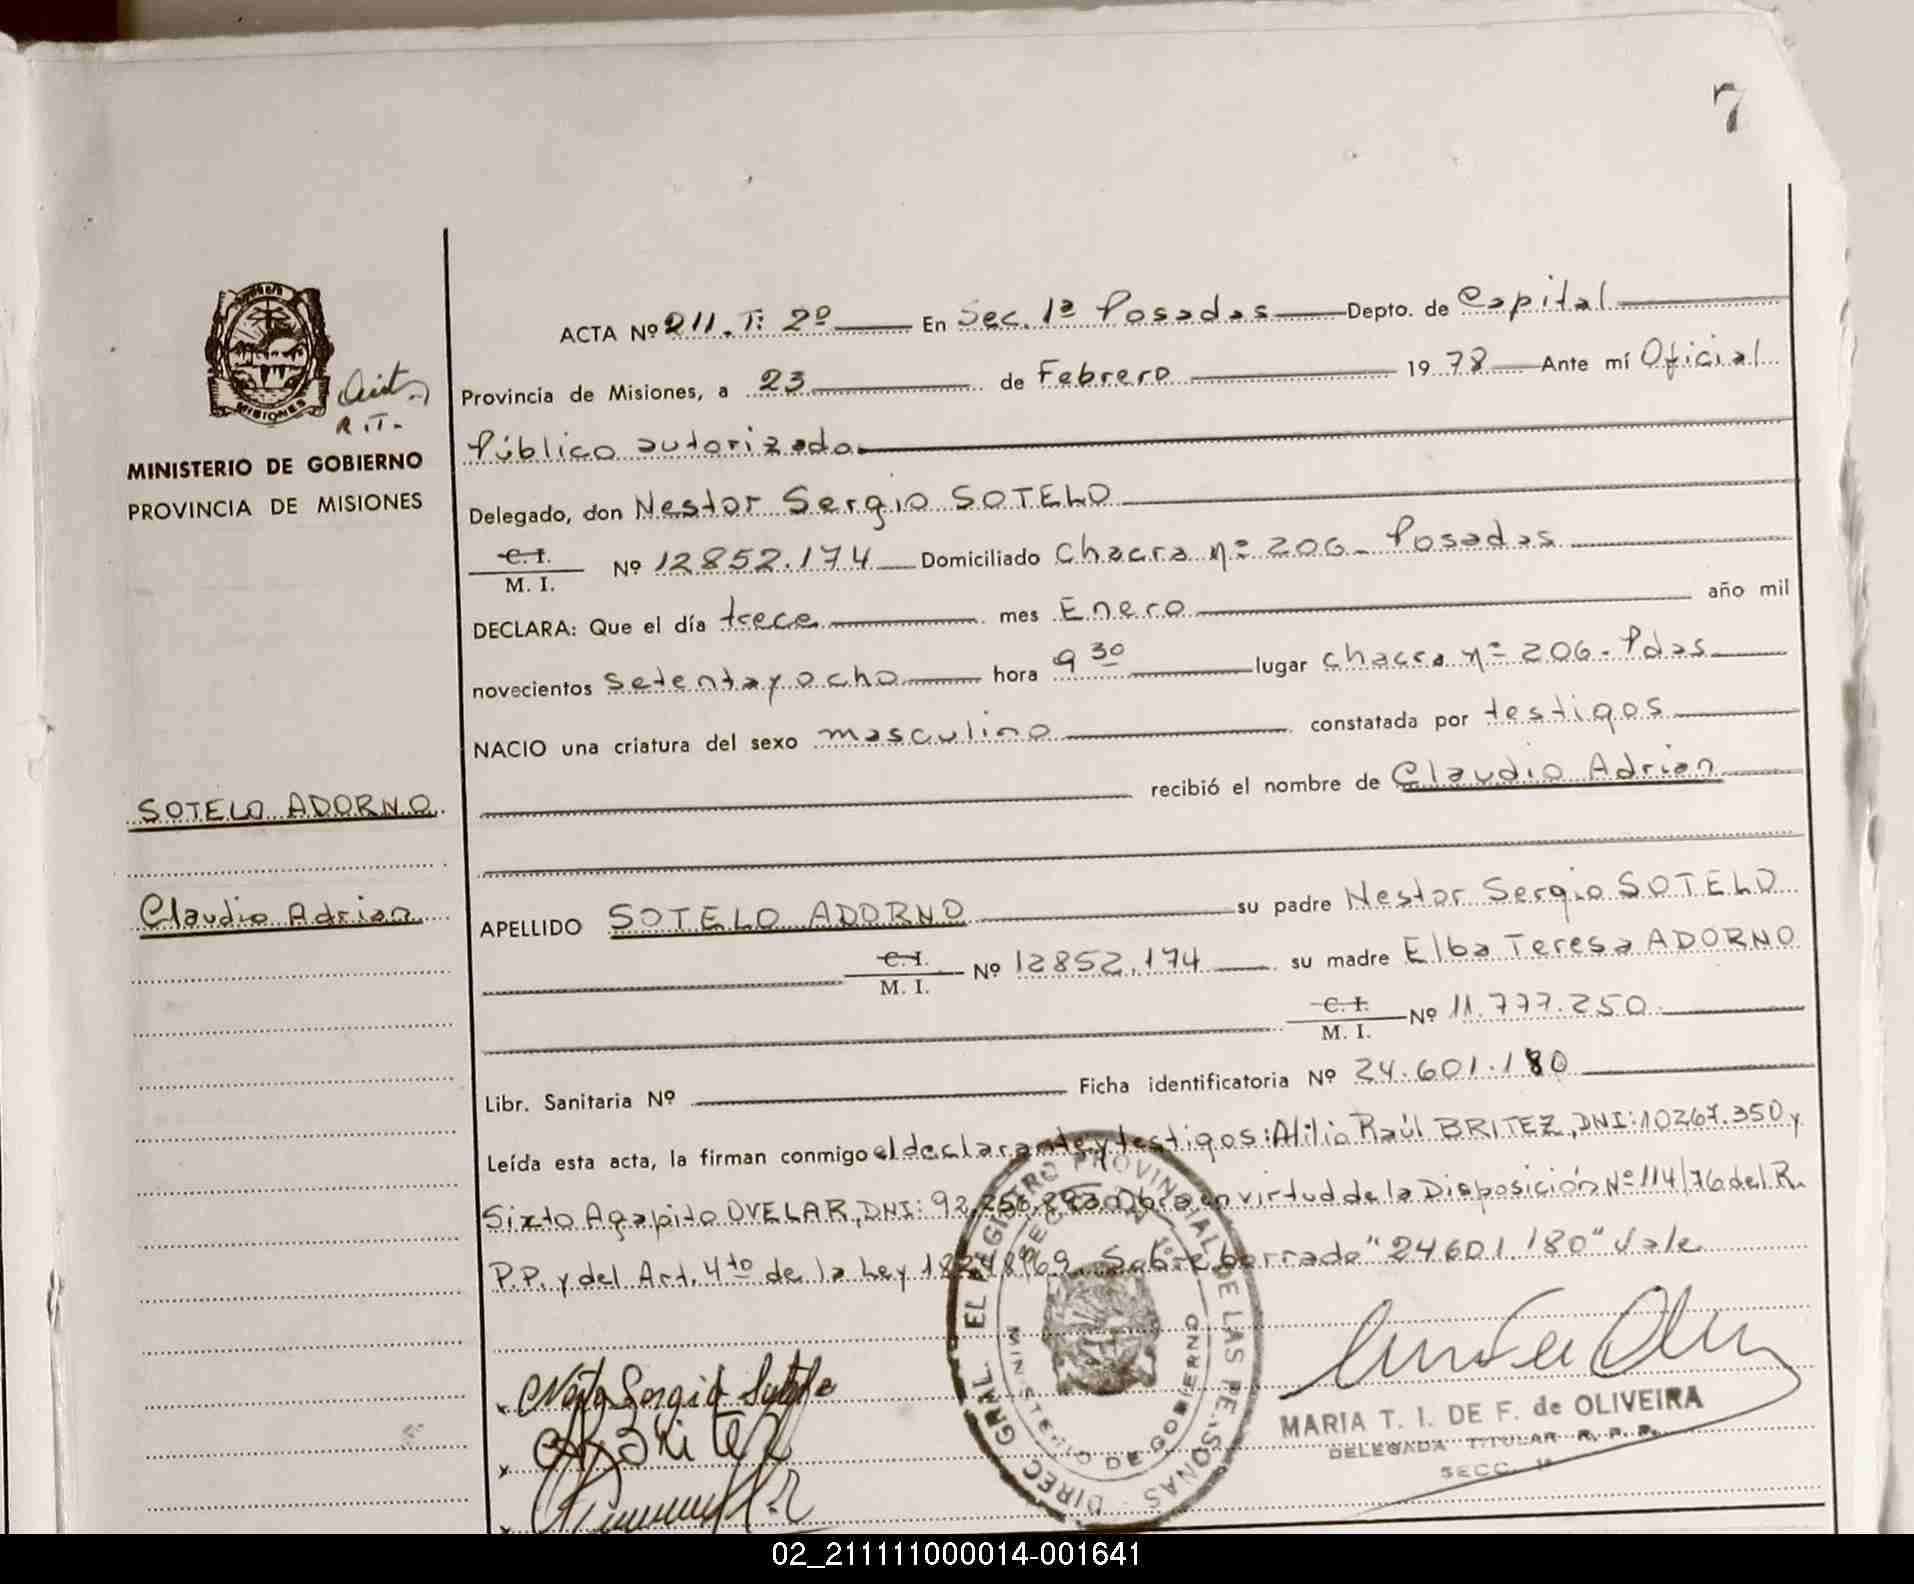 7
MISIONES
R.T.
MINISTERIO DE GOBIERNO
PROVINCIA DE MISIONES
ACTA Nº 211. T: 2º En Sec. 1ª Posadas Depto. de Capital
Provincia de Misiones, a 23 de Febrero 1978 Ante mí Oficial
Público autorizado
Delegado, don Nestor Sergio SOTELO
C.I.
M. I. Nº 12852.174 Domiciliado Chacra nº 206 - Posadas
DECLARA: Que el día trece mes Enero año mil
novecientos setenta y ocho hora 9 30 lugar chacra nº 206 - Pdas
NACIO una criatura del sexo masculino constatada por testigos
recibió el nombre de Claudio Adrian
SOTELO ADORNO
Claudio Adrian
APELLIDO SOTELO ADORNO su padre Nestor Sergio SOTELO
C.I.
M. I. Nº 12852.174 su madre Elba Teresa ADORNO
C.I.
M. I. Nº 11.777.250
Libr. Sanitaria Nº Ficha identificatoria Nº 24.601.180
Leída esta acta, la firman conmigo el declarante y testigos: Atilio Raúl BRITEZ, DNI: 10267.350 y
Sixto Agapito OVELAR, DNI: Obra en virtud de la Disposición Nº 114/76 del R.
P.P. y del Art. 4to de la Ley 18248/69. Sobre borrado "24601.180" Vale
DIREC. GRAL. EL REGISTRO PROVINCIAL DE LAS PERSONAS
MINISTERIO DE GOBIERNO
Nestor Sergio Sotelo
Britez
MARIA T. I. DE F. de OLIVEIRA
DELEGADA TITULAR R. P. P.
SECC. 1ª
02_211111000014-001641